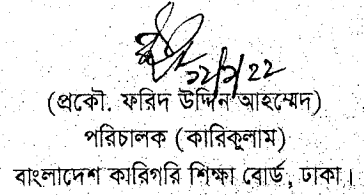 ১২/১/২২
(প্রকৌ. ফরিদ উদ্দিন আহম্মেদ)
পরিচালক (কারিকুলাম)
বাংলাদেশ কারিগরি শিক্ষা বোর্ড, ঢাকা।